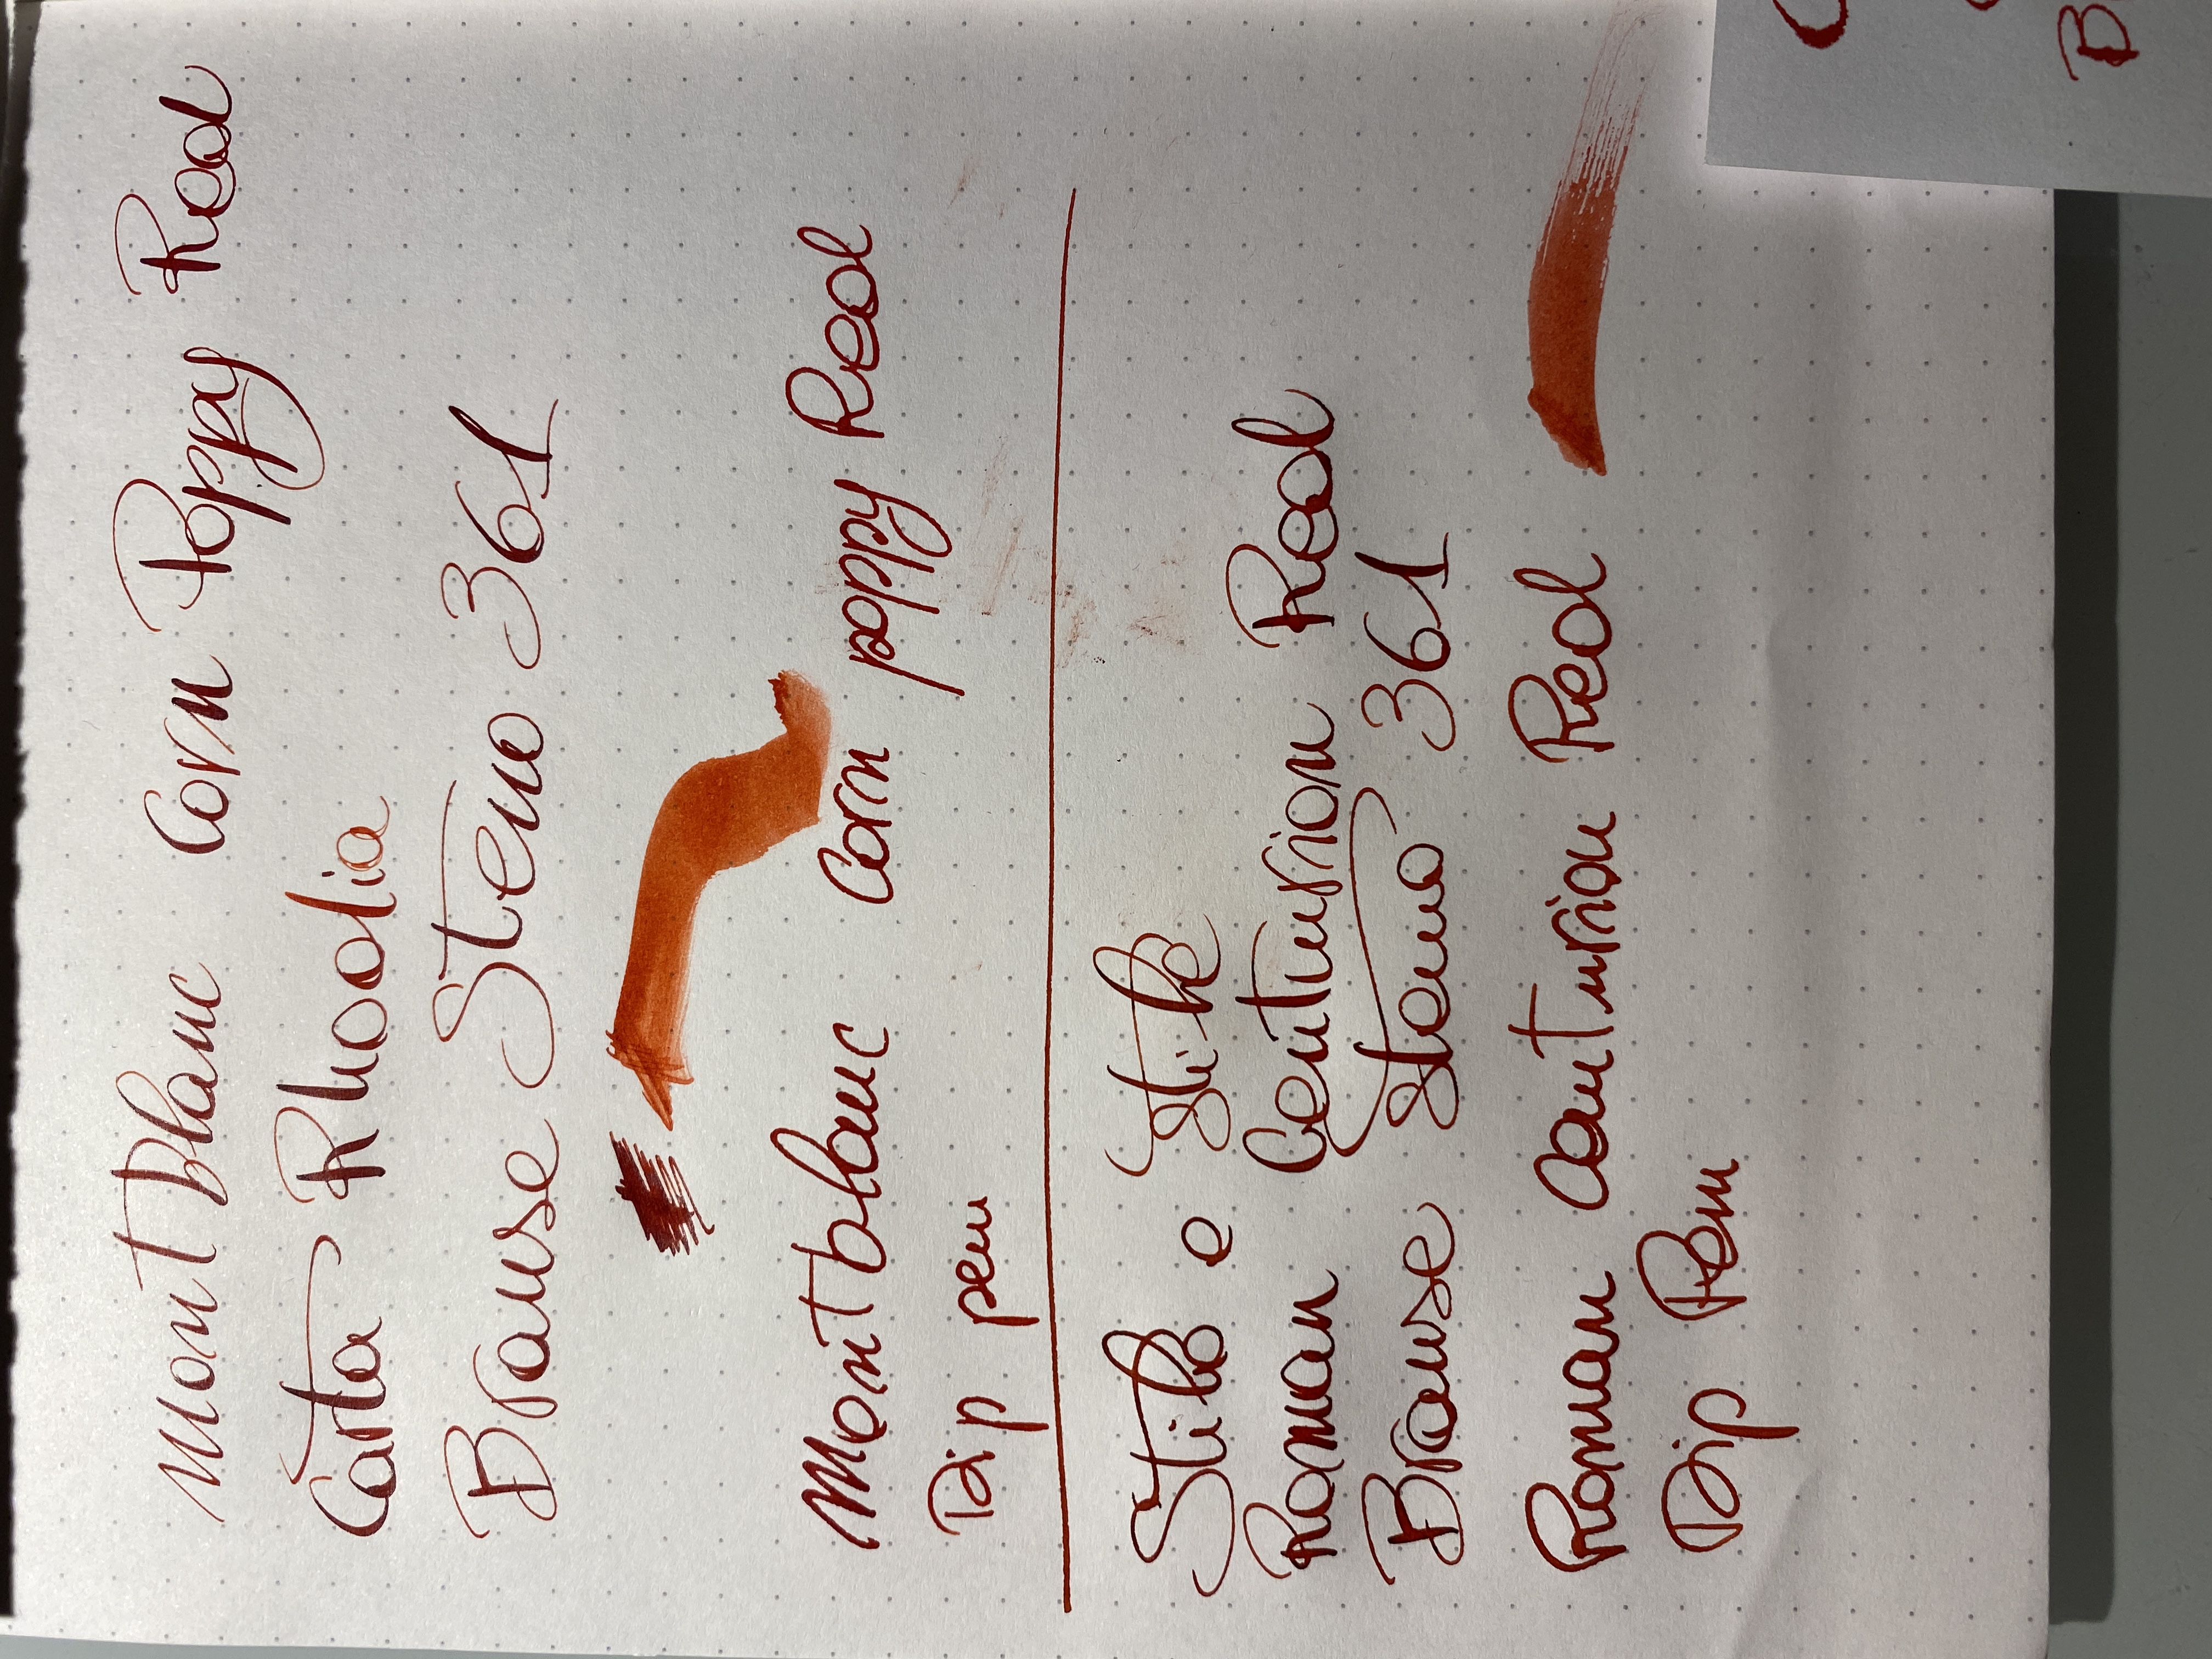 Mont Blanc Corn Poppy Red
Carta Rhodia
Brause Steno 361
Mont blanc Corn poppy Red
Dip pen
Stilo e Stile
Roman Centurion Red
Brause Steno 361
Roman Centurion Red
Dip Pen
C
B